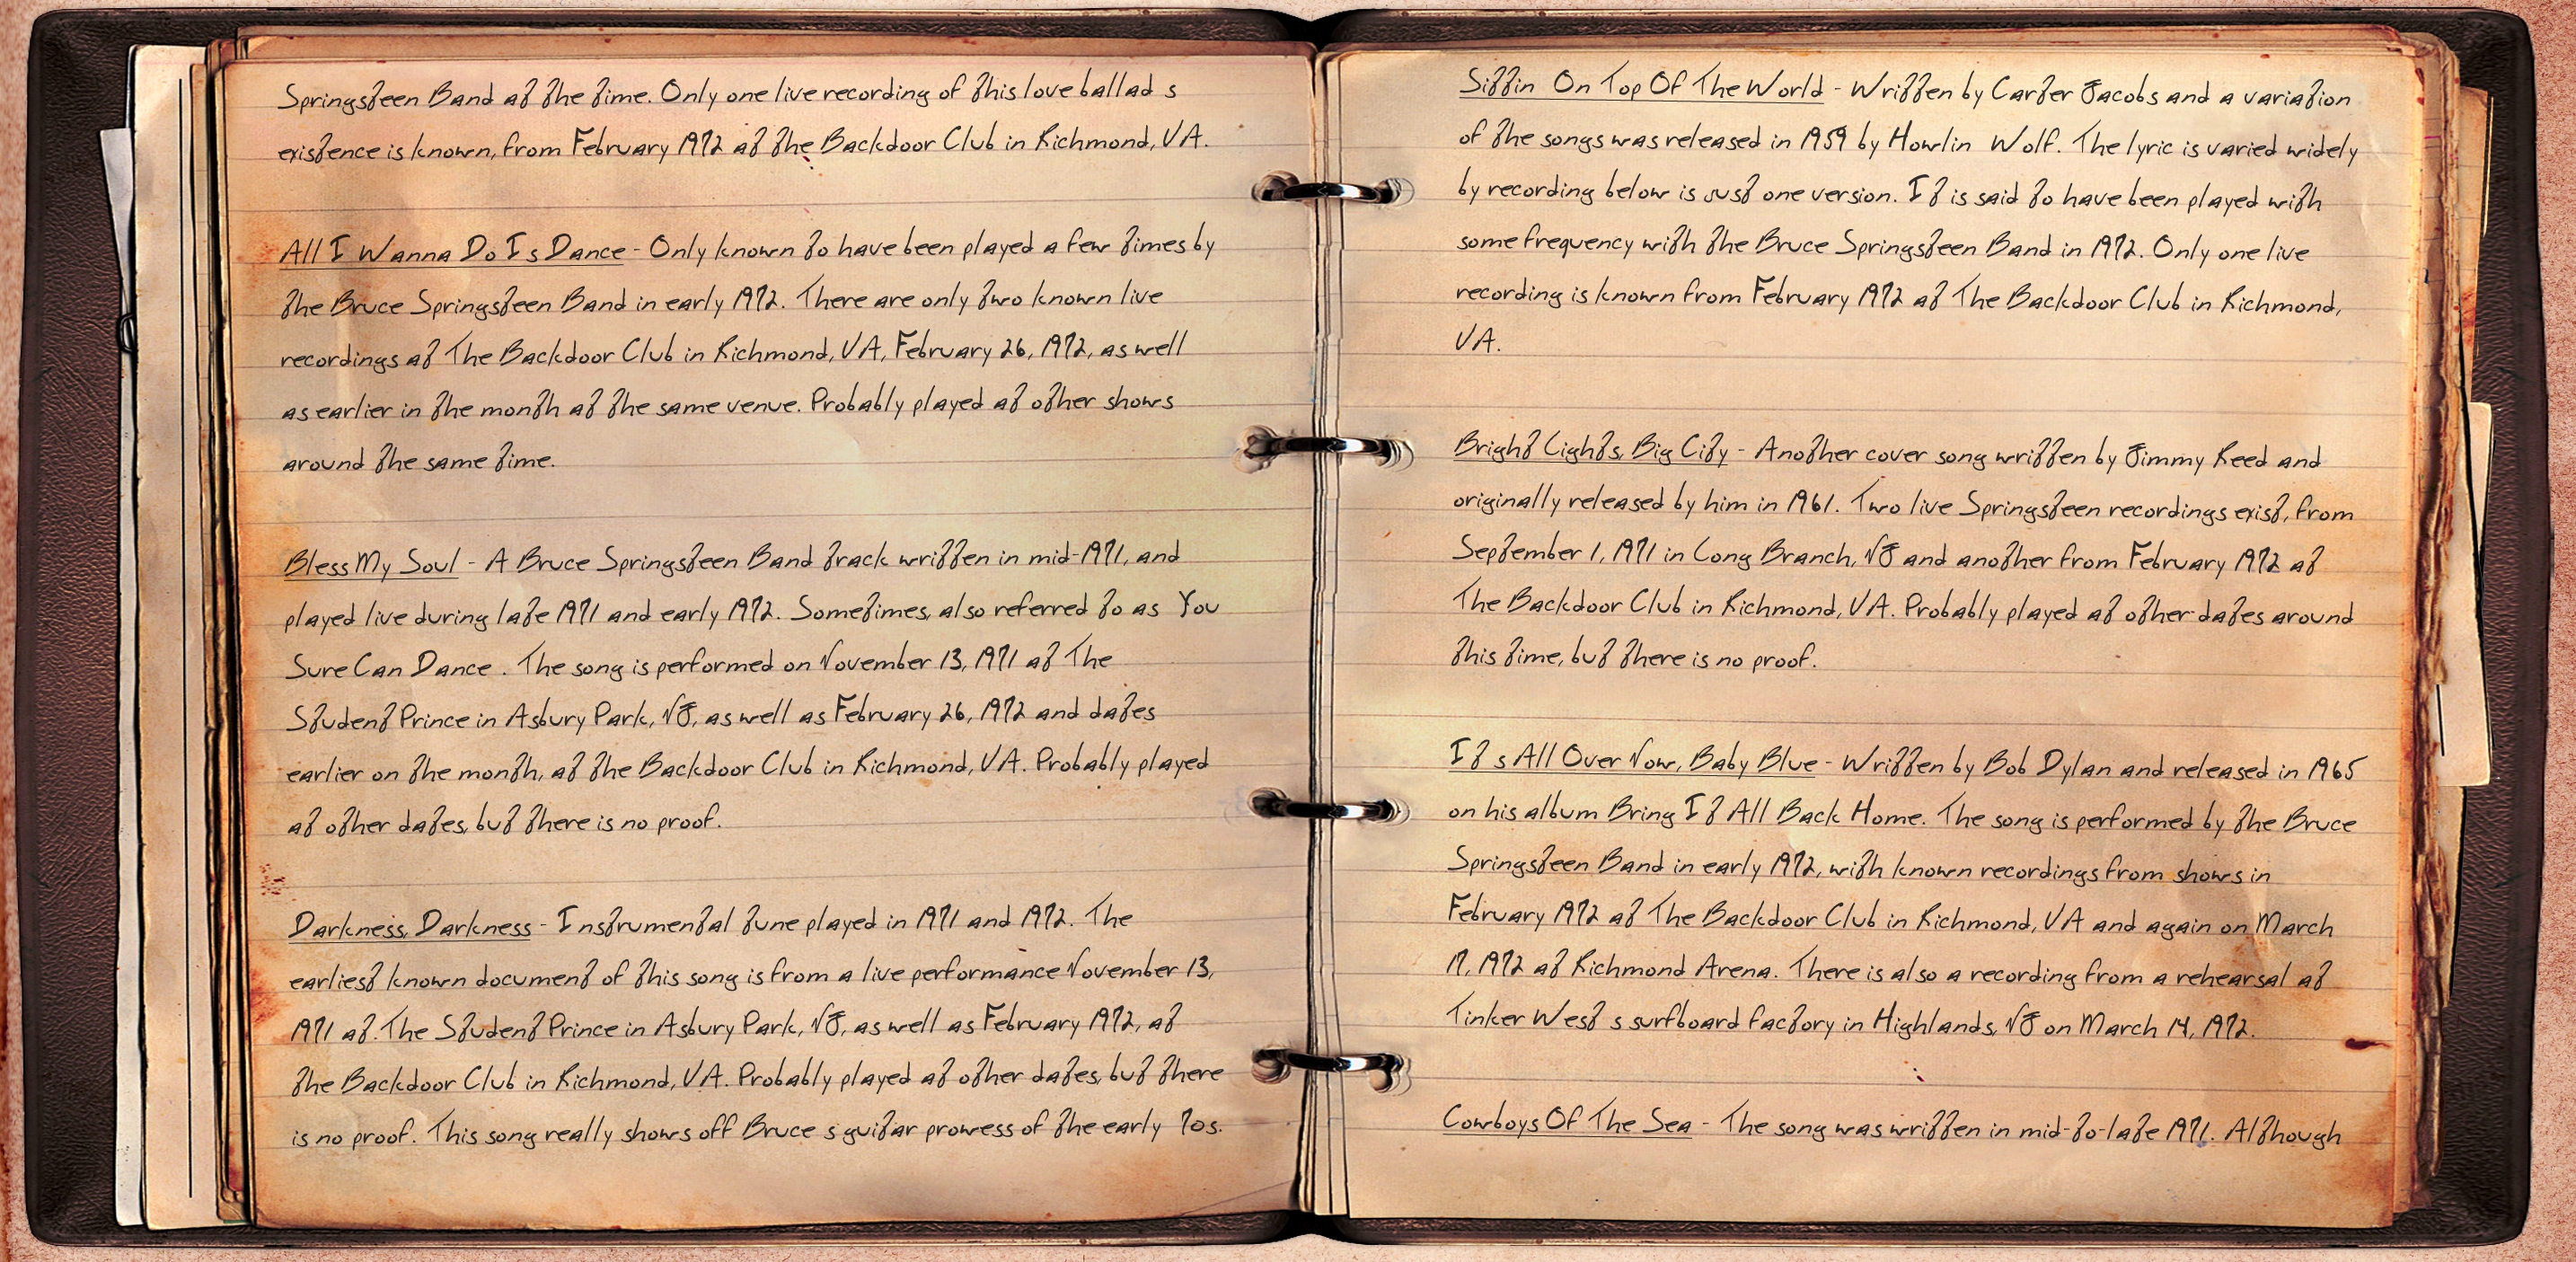 Springsteen Band at the time. Only one live recording of this love ballad s
existence is known, from February 1972 at the Backdoor Club in Richmond, VA.
All I Wanna Do Is Dance - Only known to have been played a few times by
the Bruce Springsteen Band in early 1972. There are only two known live
recordings at The Backdoor Club in Richmond, VA, February 26, 1972, as well
as earlier in the month at the same venue. Probably played at other shows
around the same time.
Bless My Soul - A Bruce Springsteen Band track written in mid-1971, and
played live during late 1971 and early 1972. Sometimes, also referred to as You
Sure Can Dance . The song is performed on November 13, 1971 at The
Student Prince in Asbury Park, NJ, as well as February 26, 1972 and dates
earlier on the month, at the Backdoor Club in Richmond, VA. Probably played
at other dates, but there is no proof.
Darkness, Darkness - Instrumental tune played in 1971 and 1972. The
earliest known document of this song is from a live performance November 13,
1971 at The Student Prince in Asbury Park, NJ, as well as February 1972, at
the Backdoor Club in Richmond, VA. Probably played at other dates, but there
is no proof. This song really shows off Bruce s guitar prowess of the early 70s.
Sittin On Top Of The World - Written by Carter Jacobs and a variation
of the songs was released in 1959 by Howlin Wolf. The lyric is varied widely
by recording below is just one version. It is said to have been played with
some frequency with the Bruce Springsteen Band in 1972. Only one live
recording is known from February 1972 at The Backdoor Club in Richmond,
VA.
Bright Lights, Big City - Another cover song written by Jimmy Reed and
originally released by him in 1961. Two live Springsteen recordings exist, from
September 1, 1971 in Long Branch, NJ and another from February 1972 at
The Backdoor Club in Richmond, VA. Probably played at other dates around
this time, but there is no proof.
It s All Over Now, Baby Blue - Written by Bob Dylan and released in 1965
on his album Bring It All Back Home. The song is performed by the Bruce
Springsteen Band in early 1972, with known recordings from shows in
February 1972 at The Backdoor Club in Richmond, VA and again on March
17, 1972 at Richmond Arena. There is also a recording from a rehearsal at
Tinker West s surfboard factory in Highlands, NJ on March 14, 1972.
Cowboys Of The Sea - The song was written in mid-to-late 1971. Although